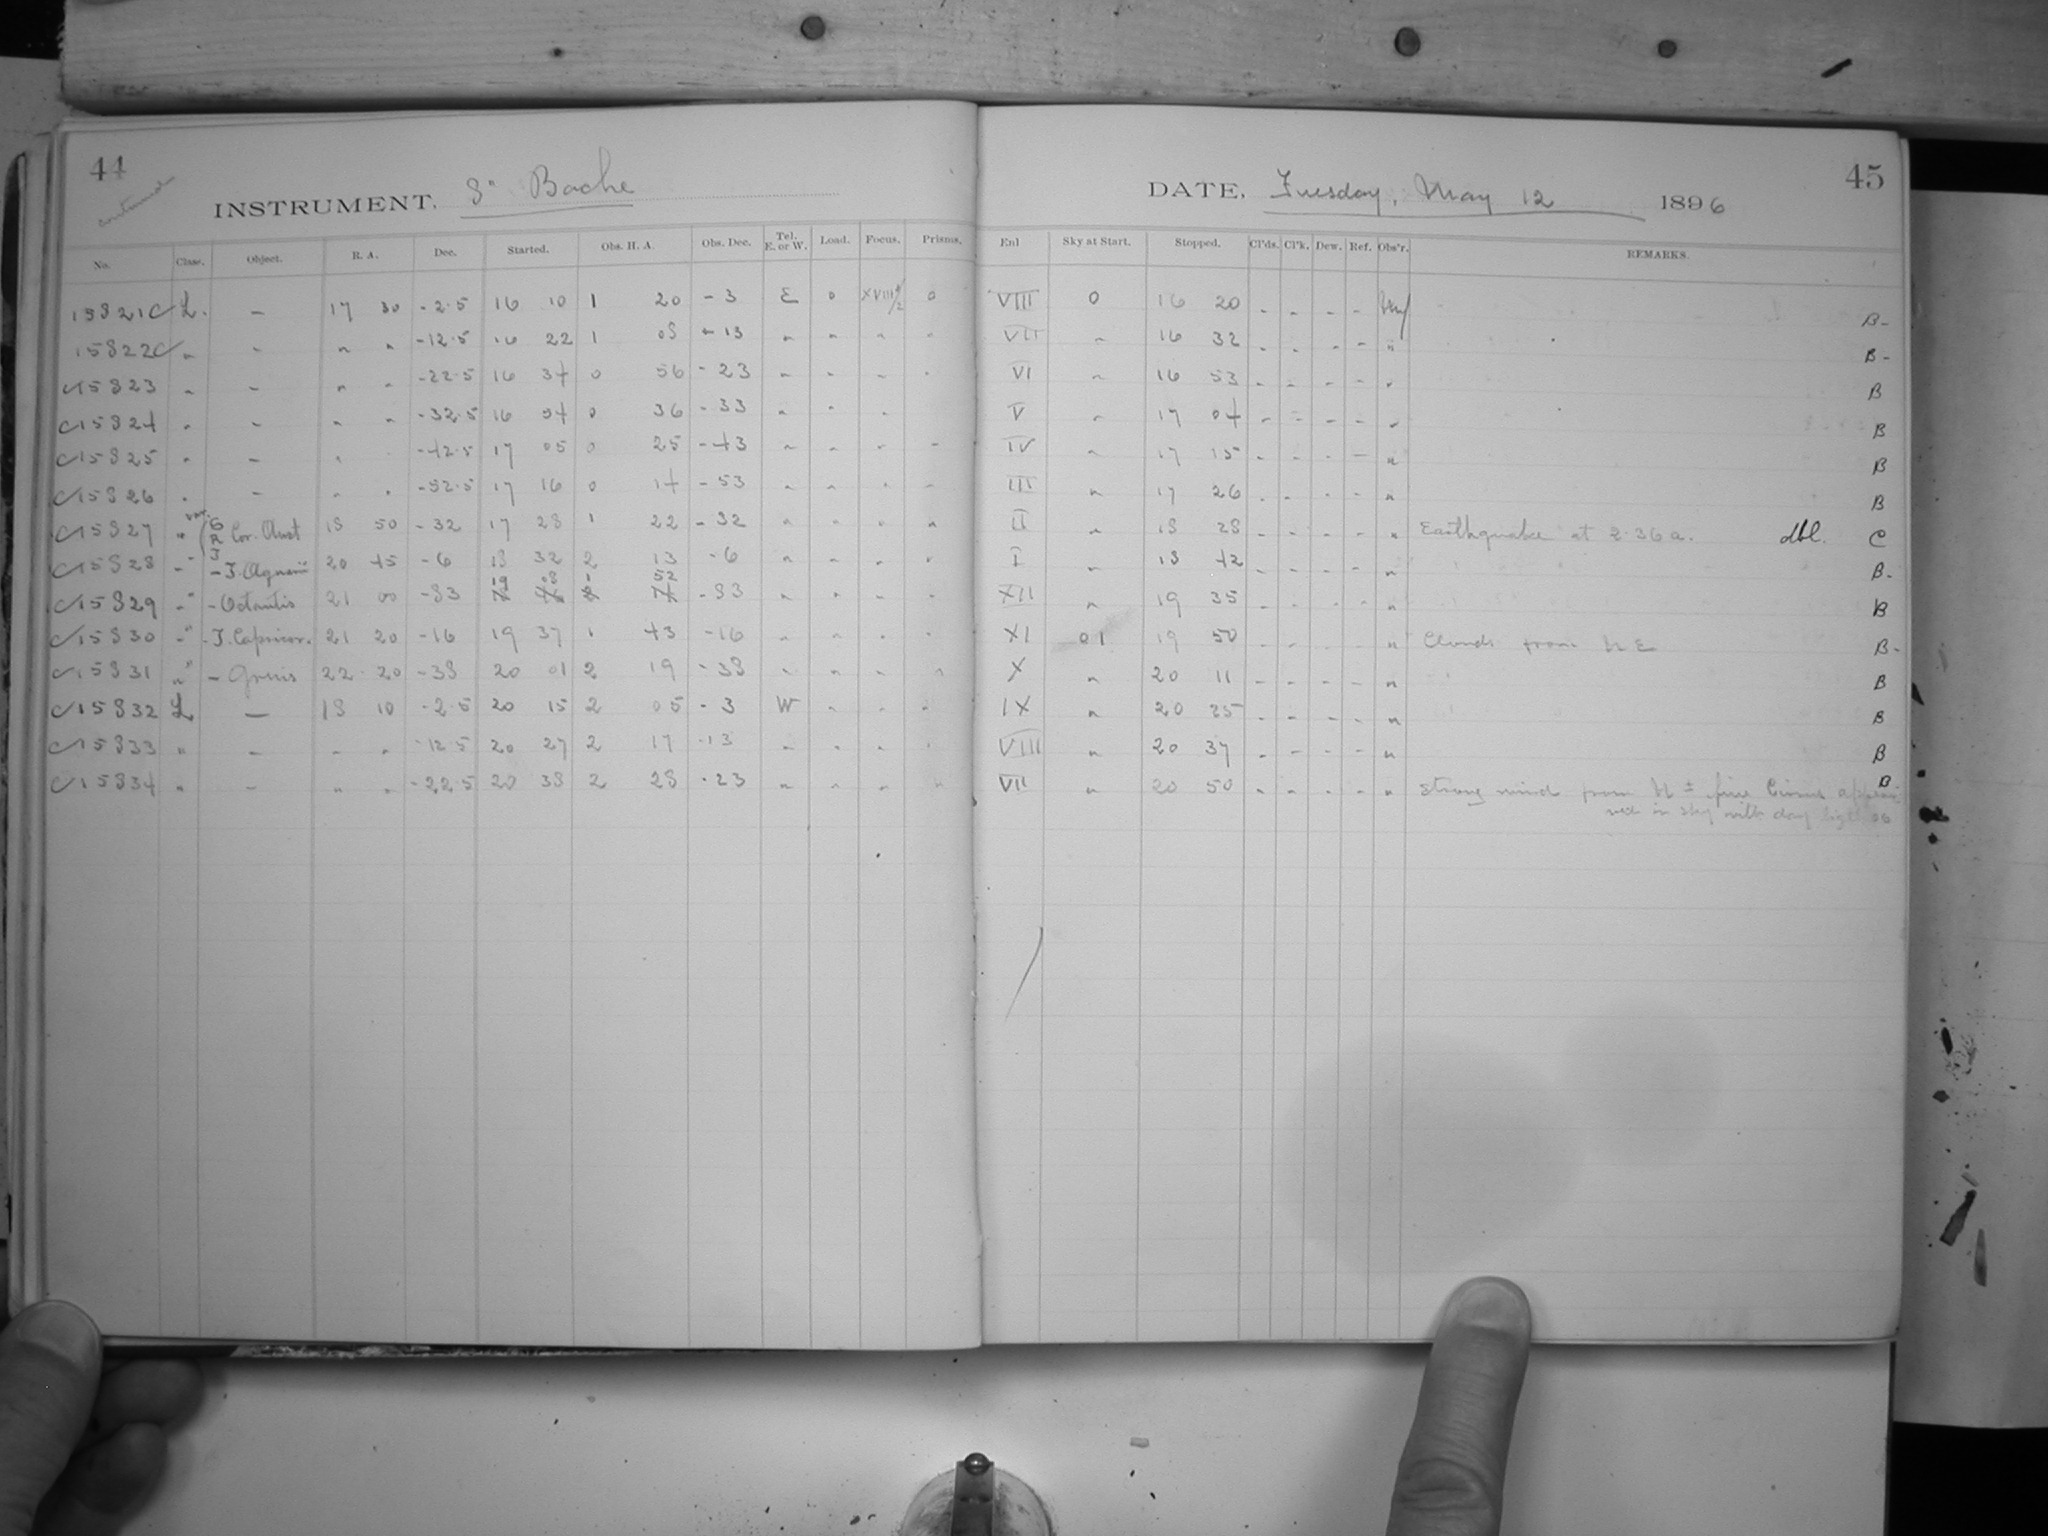 44
continued
INSTRUMENT. 8" Bache
No. Class. Object. R. A. Dec. Started. Obs. H. A. Obs. Dec. Tel. E. or W. Load. Focus. Prisms.
15821 C L. - 17 30 -2.5 16 10 1 20 -3 E 0 0
15822 C " - " " -12.5 16 22 1 08 -13 " " " "
C 15823 " - " " -22.5 16 34 0 56 -23 " " " "
C 15824 " - " " -32.5 16 54 0 36 -33 " " "
C 15825 " - " -42.5 17 05 0 25 -43 " " " "
C 15826 " - " " -52.5 17 16 0 14 -53 " " " "
C 15827 " var. R Cor. Aust 18 50 -32 17 28 1 22 -32 " " " "
C 15828 " " - T. Aquarii 20 45 -6 18 32 2 13 -6 " " " "
C 15829 " " - Octantis 21 00 -83 19 08 1 52 -83 " " " "
C 15830 " " - T. Capricor. 21 20 -16 19 37 1 43 -16 " " " "
C 15831 " " - Gruis 22 20 -38 20 01 2 19 -38 " " " "
C 15832 L - 18 10 -2.5 20 15 2 05 -3 W " " "
C 15833 " - " " -12.5 20 27 2 17 -13 " " " "
C 15834 " - " " -22.5 20 38 2 28 -23 " " " "
45
DATE, Tuesday, May 12 1896
Enl Sky at Start. Stopped. Cl'ds. Cl'k. Dew. Ref. Obs'r. REMARKS.
VIII 0 16 20 - - - - B-
VII " 16 32 - - - - " B-
VI " 16 53 - - - - " B
V " 17 04 - - - - " B
IV " 17 15 - - - - " B
III " 17 26 - - - - " B
II " 18 28 - - - - " Earthquake at 2.36 a. dbl. C
I " 18 42 - - - - " B-
XII " 19 35 - - - - " B
XI 01 19 50 - - - - " Clouds from N E B-
X " 20 11 - - - - " B
IX " 20 25 - - - - " B
VIII " 20 37 - - - - " B
VII " 20 50 - - - - " Strong wind from N ± fine Cirrus B
in sky with day light